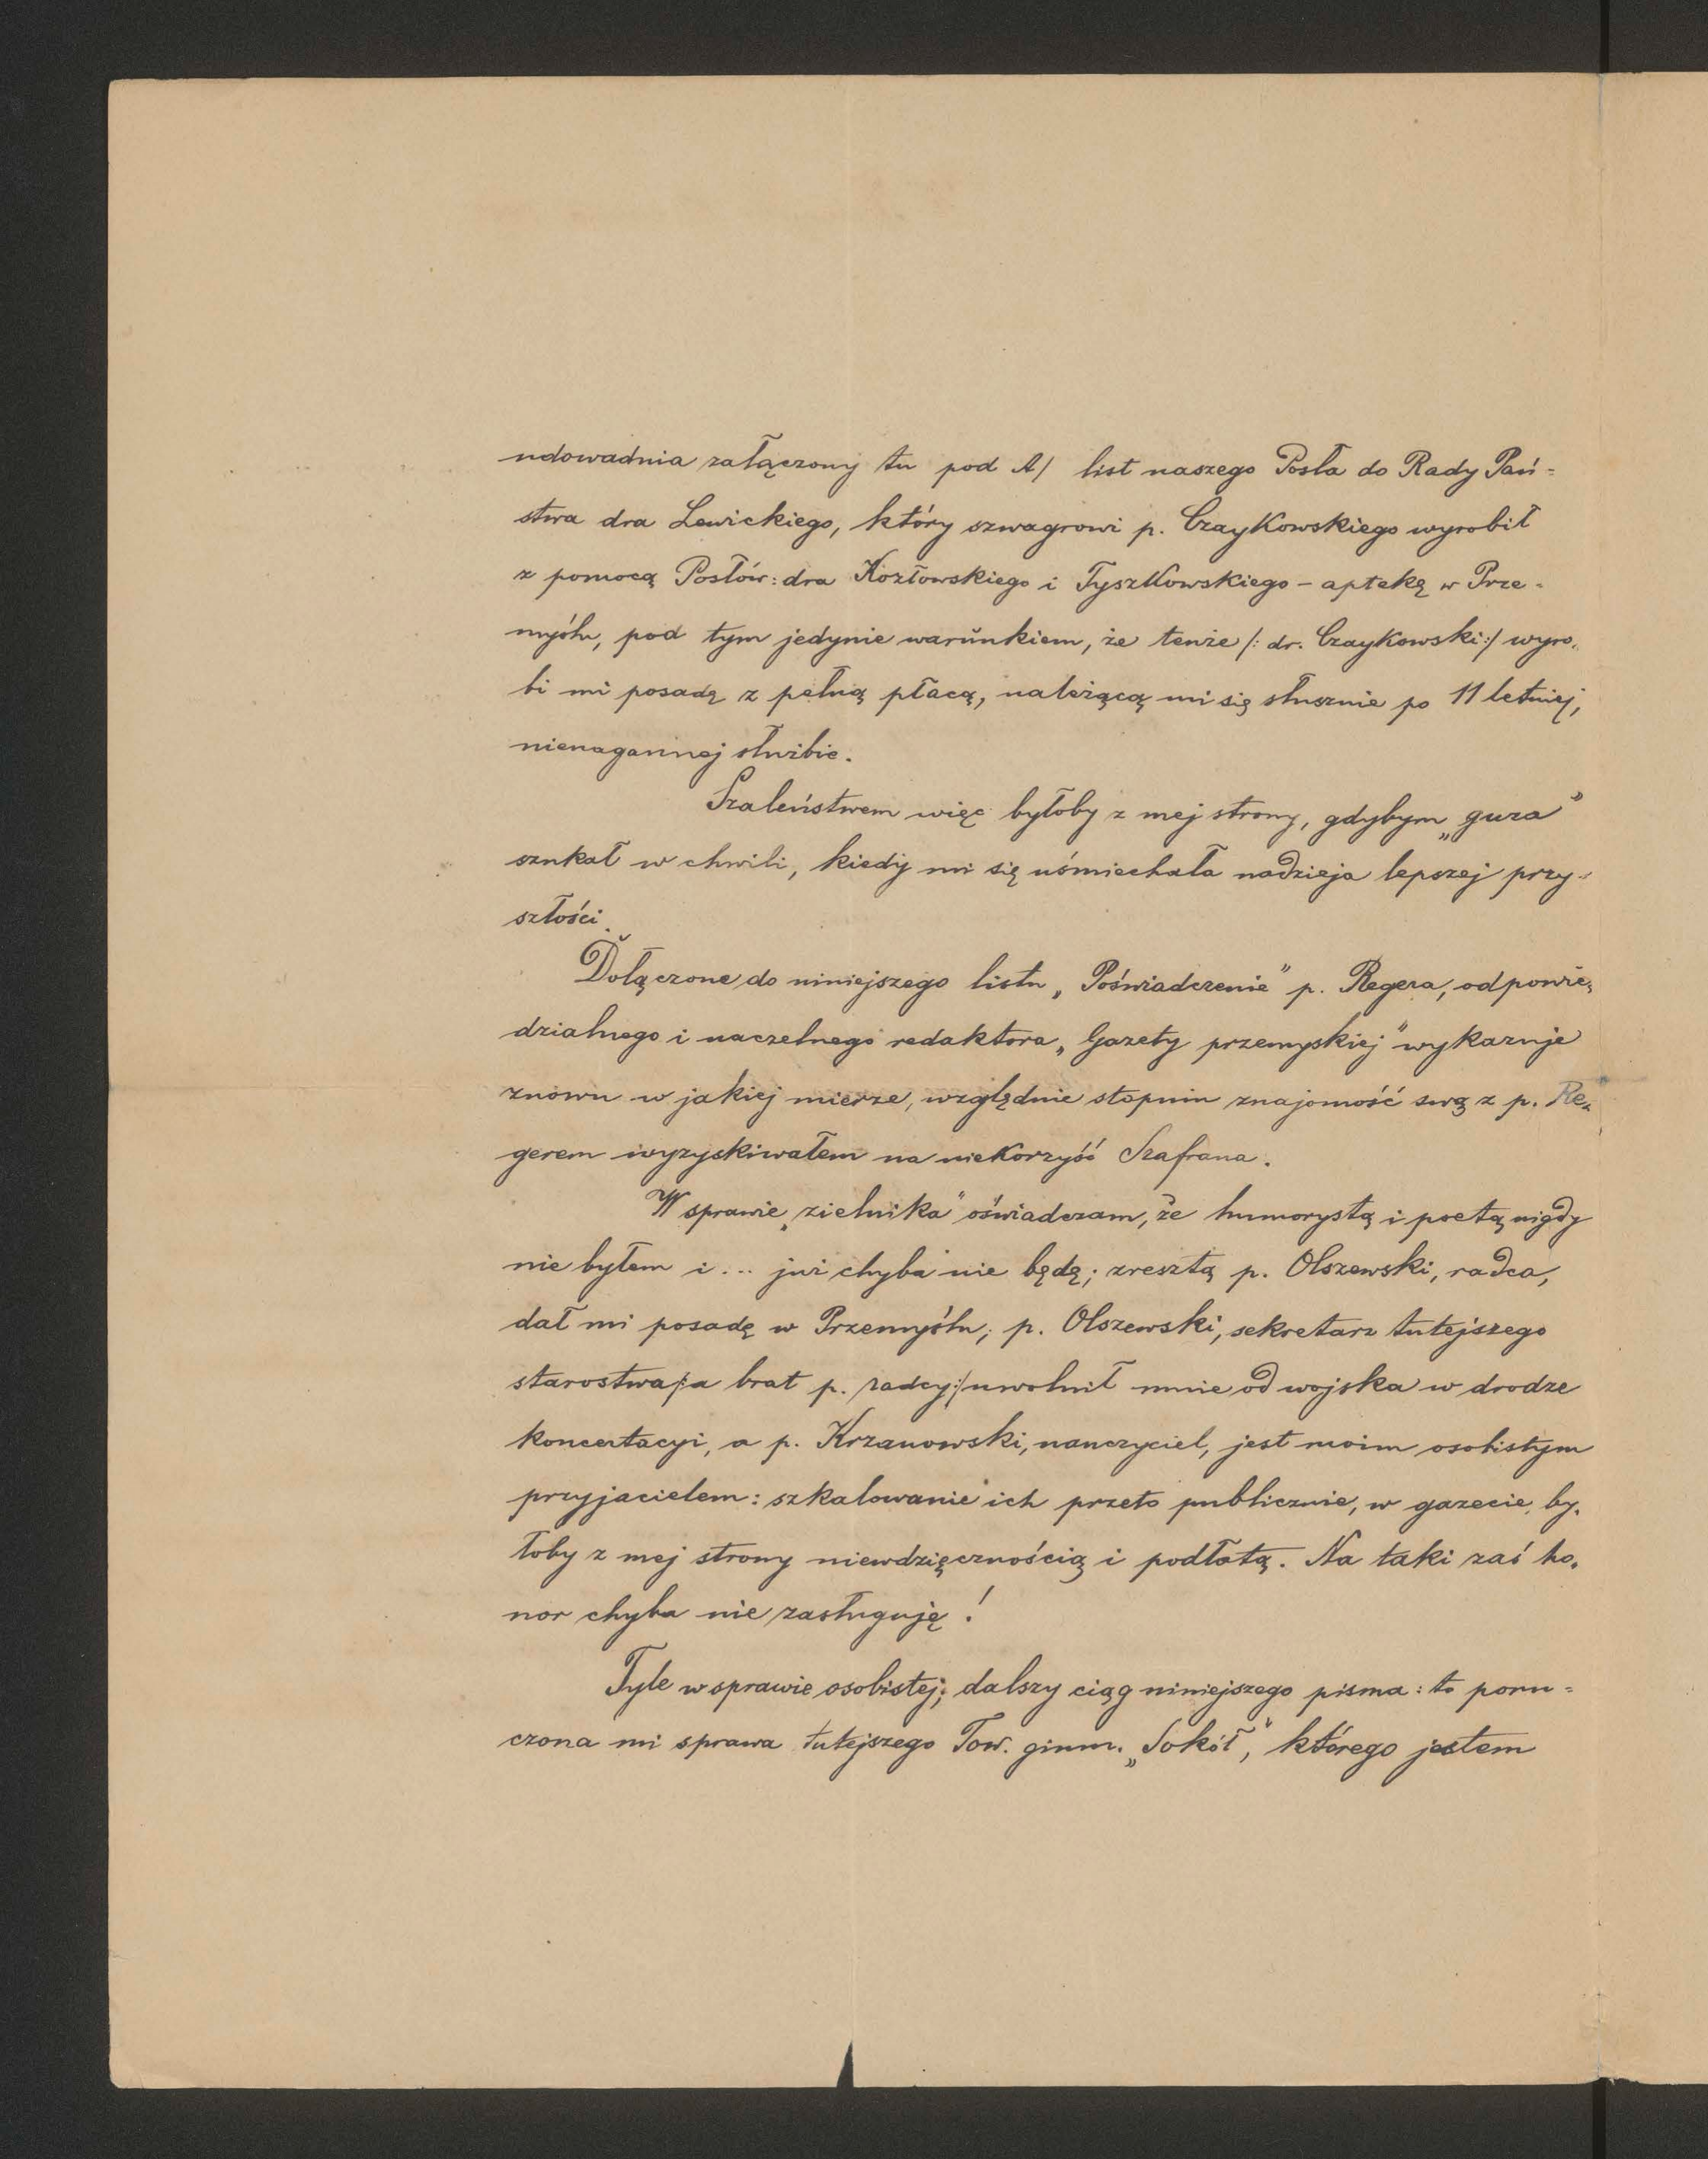 udowadnia załączony tu pod A/ list naszego Posła do Rady Pań=
stwa dra Lewickiego, który szwagrowi p. Czaykowskiego wyrobił
z pomocą Posłów: dra Kozłowskiego i Tyszkowskiego – aptekę w Prze=
myślu, pod tym jedynie warunkiem, że tenże /: dr. Czaykowski:/ wyro„
bi mi posadę z pełną płacą, należącą mi się słusznie po 11 letniej,
nienagannej służbie.
Szaleństwem więc byłoby z mej strony, gdybym „guza”
szukał w chwili, kiedy mi się uśmiechała nadzieja lepszej przy=
szłości.
Dołączone do niniejszego listu „Poświadczenie” p. Regera, odpowie„
dzialnego i naczelnego redaktora „Gazety przemyskiej” wykazuje
znowu w jakiej mierze, względnie stopniu znajomość swą z p. Re„
gerem wyzyskiwałem na niekorzyść Szafrana.
W sprawie „zielnika” oświadczam, że humorystą i poetą nigdy
nie byłem i... już chyba nie będę; zresztą p. Olszewski, radca,
dał mi posadę w Przemyślu; p. Olszewski, sekretarz tutejszego
starostwa /:a brat p. radcy:/ uwolnił mnie od wojska w drodze
koncertacyi, a p. Krzanowski, nauczyciel, jest moim osobistym
przyjacielem: szkalowanie ich przeto publicznie, w gazecie, by„
łoby z mej strony niewdzięcznością i podłotą. Na taki zaś ho„
nor chyba nie zasługuję!
Tyle w sprawie osobistej; dalszy ciąg niniejszego pisma: to poru=
czona mi sprawa tutejszego Tow. gimn. „Sokół”, którego jestem